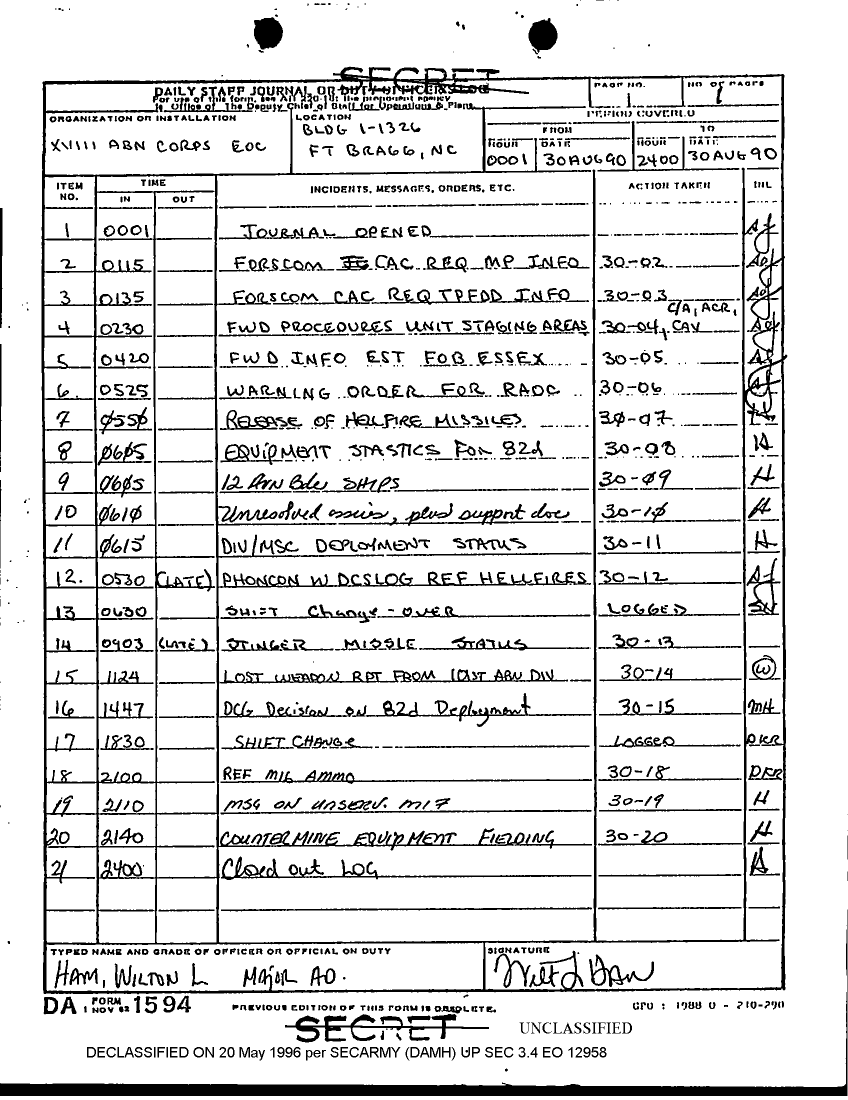 SECRET
DAILY STAFF JOURNAL OR DUTY OFFICER'S LOG
For use of this form, see AR 220-15; the proponent agency
is Office of The Deputy Chief of Staff for Operations & Plans.
PAGE NO. 1
NO. OF PAGES 1
ORGANIZATION OR INSTALLATION
XVIII ABN CORPS EOC
LOCATION
BLDG 1-1326
FT BRAGG, NC
PERIOD COVERED
FROM TO
HOUR DATE HOUR DATE
0001 30AUG90 2400 30AUG90
ITEM NO. TIME IN OUT INCIDENTS, MESSAGES, ORDERS, ETC. ACTION TAKEN INL
1 0001 JOURNAL OPENED
2 0115 FORSCOM CAC REQ MP INFO 30-02
3 0135 FORSCOM CAC REQ TPFDD INFO 30-03
4 0230 FWD PROCEDURES UNIT STAGING AREAS 30-04, C/A, ACR, CAV
5 0420 FWD INFO EST FOB ESSEX 30-05
6. 0525 WARNING ORDER FOR RAOC 30-06
7 0550 RELEASE OF HELFIRE MISSILES 30-07
8 0605 EQUIPMENT STASTICS FOR 82d 30-08 H
9 0605 12 AVN Bde SHIPS 30-09 H
10 0610 Unresolved issues, plus support doc 30-10 H
11 0615 DIV/MSC DEPLOYMENT STATUS 30-11 H
12. 0530 (LATE) PHONCON W DCSLOG REF HELLFIRES 30-12
13 0630 SHIFT Change-OVER LOGGED
14 0903 (LATE) STINGER MISSLE STATUS 30-13
15 1124 LOST WEAPON RPT FROM 101ST ABN DIV 30-14 W
16 1447 DCG Decision on 82d Deployment 30-15 MH
17 1830 SHIFT CHANGE LOGGED DKR
18 2100 REF MIL AMMO 30-18 DKR
19 2110 MSG ON UNSERV. M17 30-19 H
20 2140 COUNTERMINE EQUIPMENT FIELDING 30-20 H
21 2400 Closed out LOG H
TYPED NAME AND GRADE OF OFFICER OR OFFICIAL ON DUTY
HAM, WILTON L MAJOR AD.
SIGNATURE
Wilt L Ham
DA FORM 1 NOV 62 1594
PREVIOUS EDITION OF THIS FORM IS OBSOLETE.
GPO : 1988 O - 210-290
SECRET
UNCLASSIFIED
DECLASSIFIED ON 20 May 1996 per SECARMY (DAMH) UP SEC 3.4 EO 12958